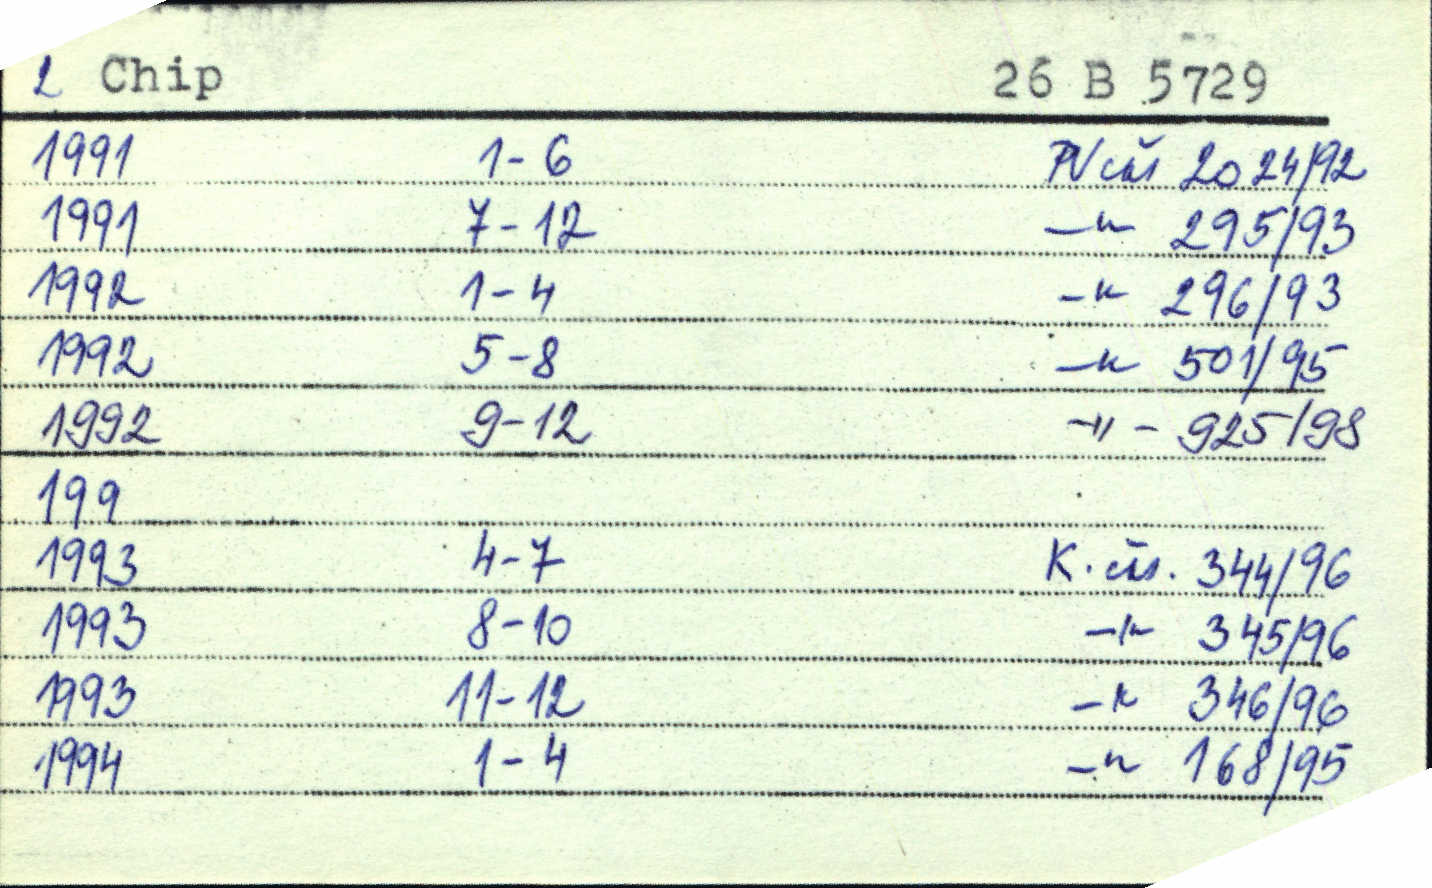 2 Chip 26 B 5729
1991 1-6 PV čás 2024/92
1991 7-12 -"- 295/93
1992 1-4 -"- 296/93
1992 5-8 -"- 501/95
1992 9-12 -"- 925/98
199
1993 4-7 K. čas. 344/96
1993 8-10 -"- 345/96
1993 11-12 -"- 346/96
1994 1-4 -"- 168/95